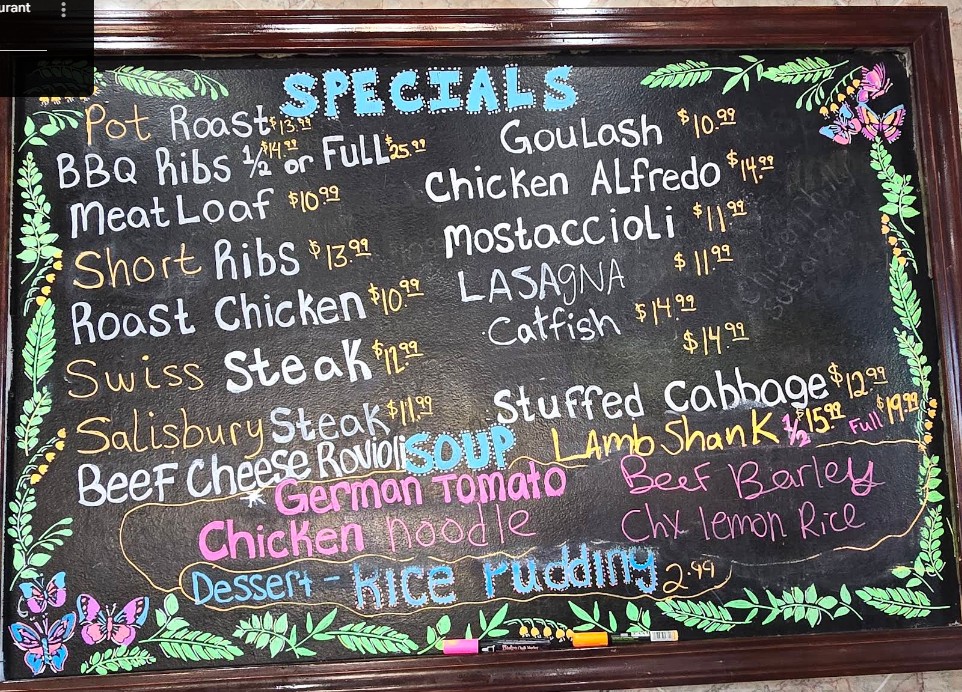 urant
SPECIALS
Pot Roast $13.99
BBQ Ribs ½ $14.99 or Full $25.99
Meat Loaf $10.99
Short Ribs $13.99
Roast Chicken $10.99
Swiss Steak $12.99
Salisbury Steak $11.99
Beef Cheese Rovioli
Goulash $10.99
Chicken Alfredo $14.99
Mostaccioli $11.99
LASAgNA $11.99
Catfish $14.99
$14.99
Stuffed Cabbage $12.99
LAmb Shank ½ $15.99 Full $19.99
SOUP
* German Tomato
Chicken noodle
Beef Barley
Chx lemon Rice
Dessert - Rice Pudding 2.99